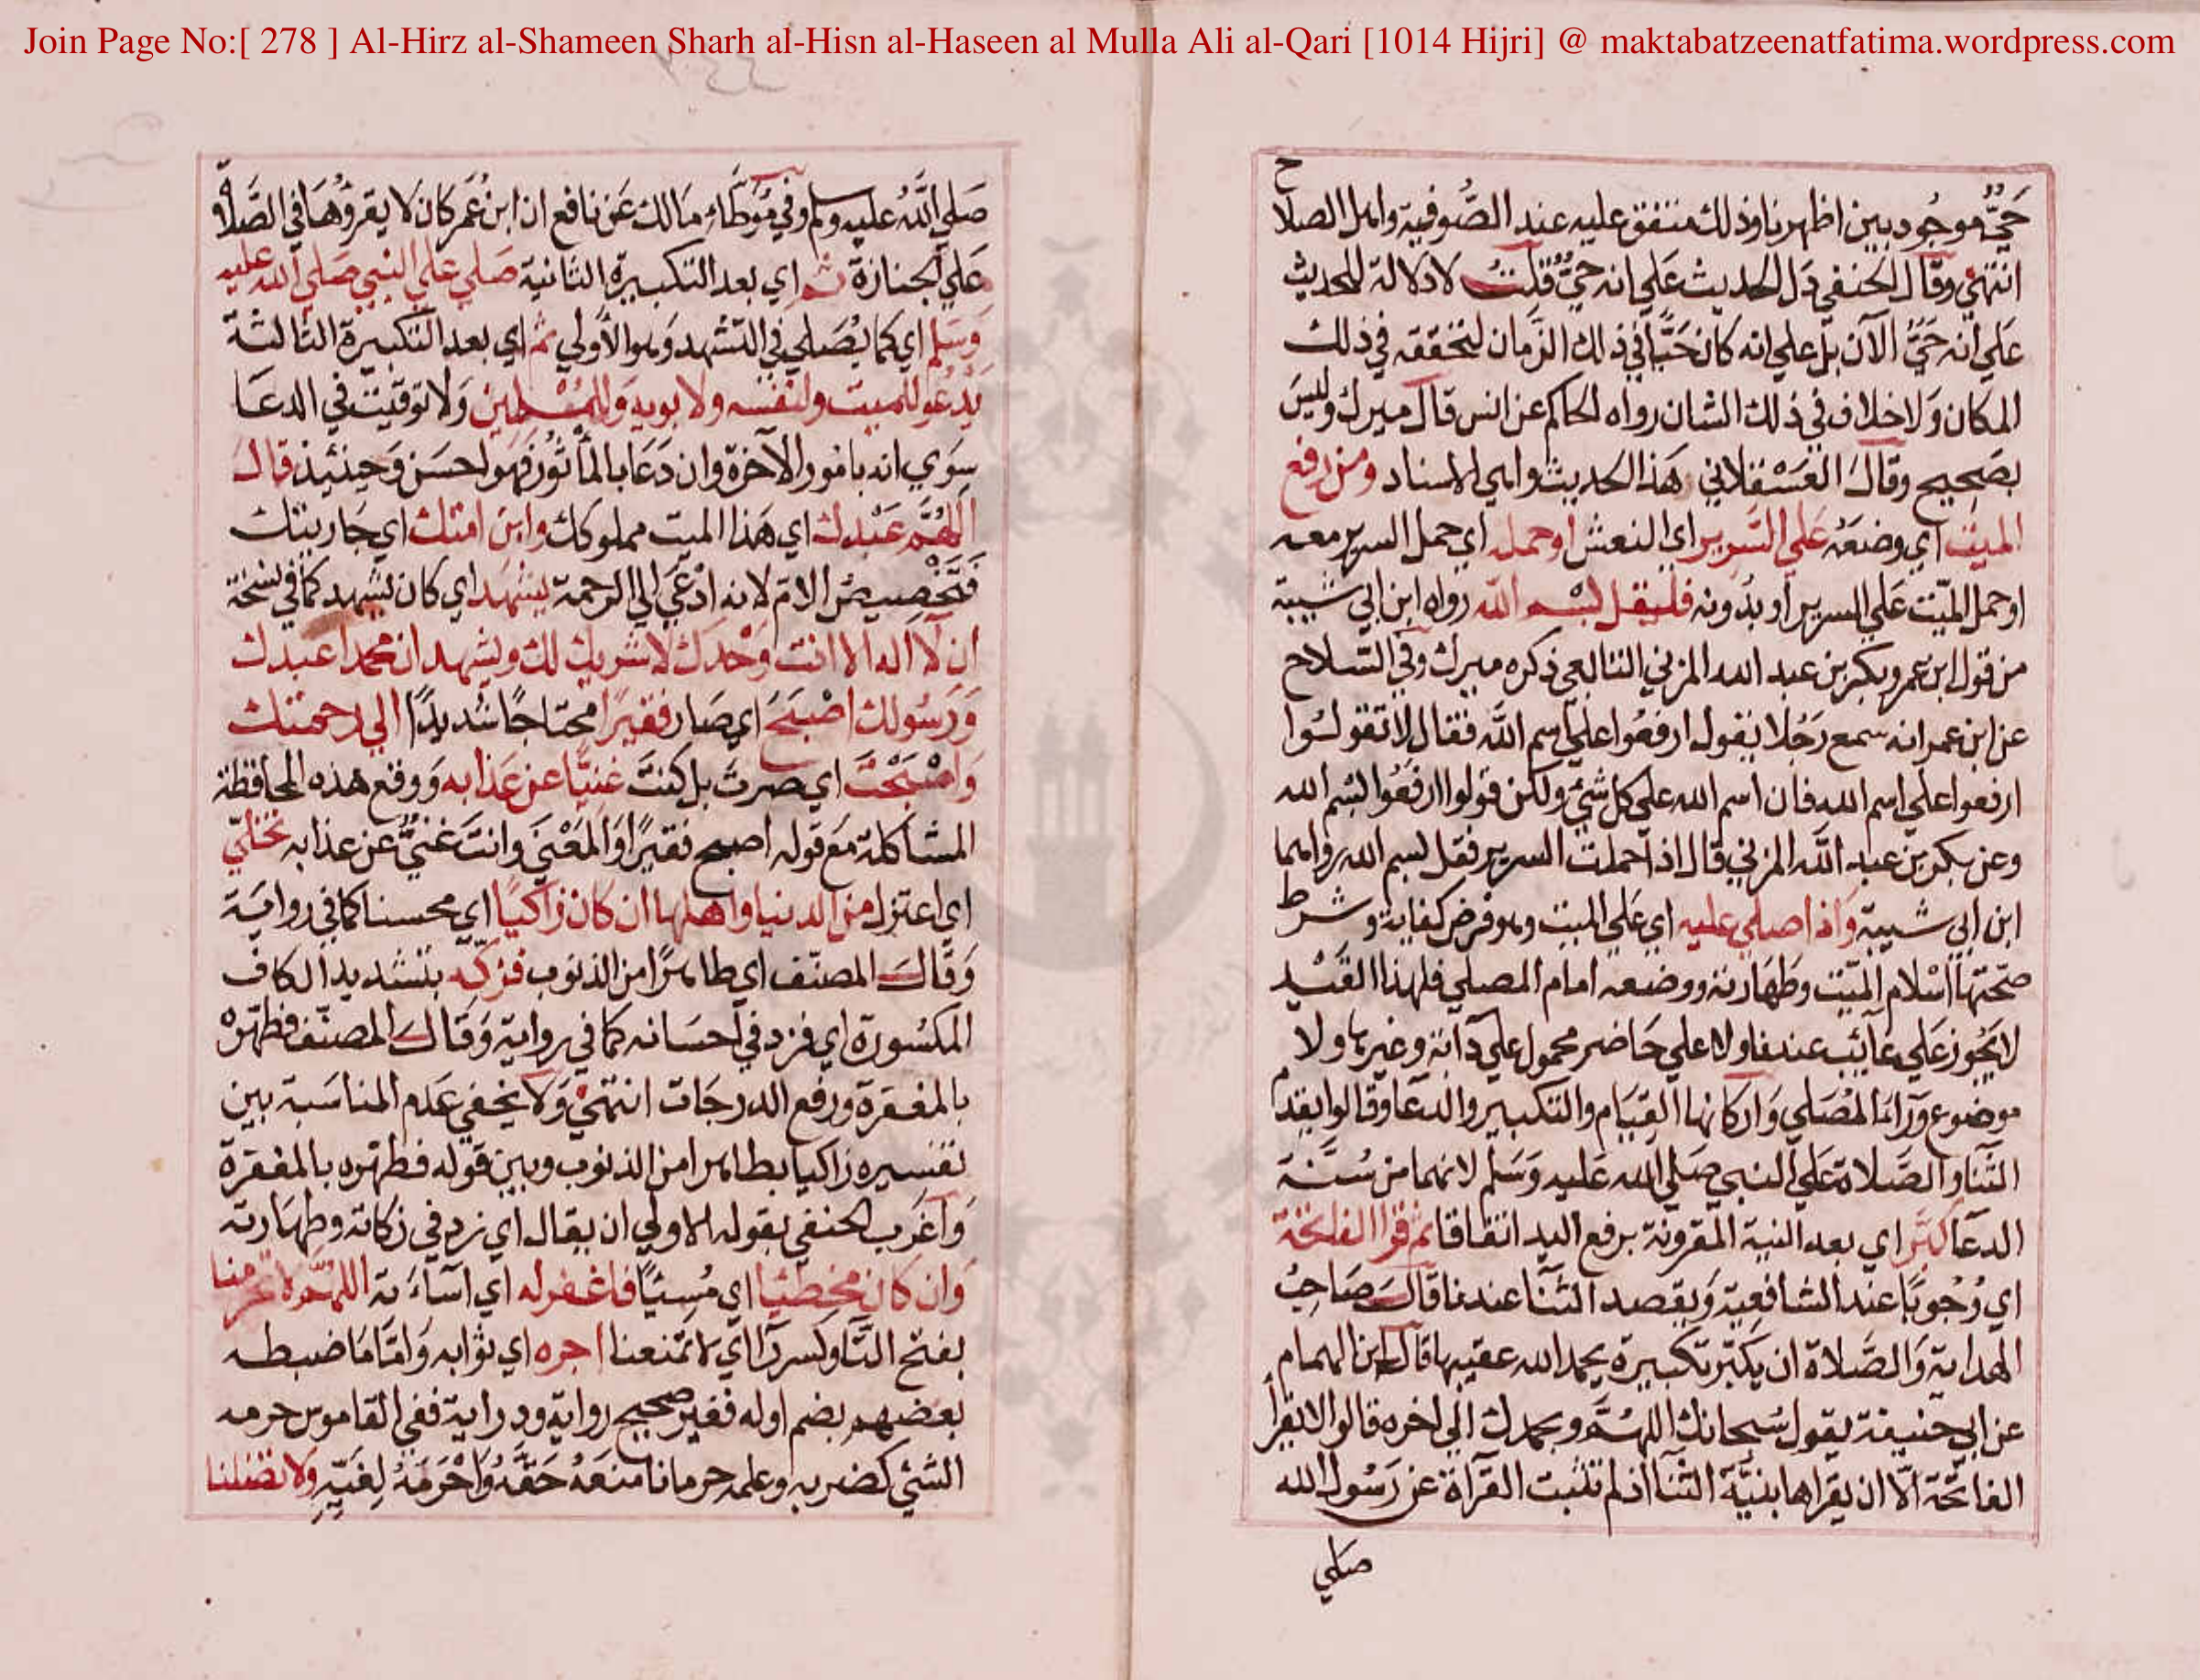 Join Page No:[ 278 ] Al-Hirz al-Shameen Sharh al-Hisn al-Haseen al Mulla Ali al-Qari [1014 Hijri] @ maktabatzeenatfatima.wordpress.com
حيّ موجود بين اظهرنا وذلك متفق عليه عند الصُّوفية واهل الصلا
ح
انتهي وقال الحنفي دَل الحديث علي انه حيٌّ قلتُ لا دلالة للحديث
عَلي انه حيٌّ الآن بل علي انه كان حَيًّا في ذلك الزمان لتحققه في ذلك
المكان وَلا خلاف في ذلك الشان رواه الحاكم عن انس قال ميرك وليسَ
بصَحِيح وقالَ العَسْقلاني هَذا الحديث واهي الاسناد ومن رفع
الميت اي وضعَهُ عَلي السَّرير اي النعش اوحمل اي حمل السرير معه
اوحمل الميّت عَلي السرير او بدُونه فليقل بسْم الله رواه ابن ابي شيبة
من قول ابن عمر وبكر بن عبد الله المزني التابعي ذكره ميرك وفي السّلاح
عن ابن عمر انه سمع رَجُلا يقول ارفعُوا علي اسم الله فقال لا تقولُوا
ارفعوا علي اسم الله فان اسم الله علي كل شئ ولكن قولوا ارفعُوا بسم الله
وعن بكر بن عبد الله المزني قال اذا حملت السرير فقل بسم الله رواهما
ابن ابي شيبة وَاذا صلي عليه اي عَلي الميت وهو فرض كفاية وشرط
صحّتها اسْلام الميّت وطهَارته ووضعه امام المصلي فلهذا القَيْد
لا يَجُوز عَلي غائب عندنا ولا علي حَاضر محمول علي دابّة وغيرها ولا
موضوع ورَآء المُصَلي وَاركانها القيَام والتكبير والدعا وقالوا يقدم
الثّنا والصَّلاة عَلي النبي صَلي الله عَليه وَسَلم لانهما من سُنّة
الدعا كبّر اي بعد النية المقرونة برفع اليد اتفاقا ثم قرا الفاتحة
اي وُجُوبًا عند الشافعيّة وَيقصد الثنا عندنا قالَ صَاحبُ
الهداية وَالصَّلاة ان يكبّر تكبيرة يحمد الله عقيبها قال ابن الهمام
عن ابي حنيفة يقول سُبحانك اللهُمَّ وبحمدك الي اخره قالوا لا يقرأ
الفاتحة الّا ان يقراها بنيَّة الثّنا اذ لم تثبت القرآة عن رَسُول الله
صلي
صَلي اللَّهُ عليه وسلم وفي مُوَطَّاء مَالك عَن نافع ان ابن عُمَر كان لا يقرؤُهَا في الصَّلاة
عَلي الجنازة ثم اي بعد التكبيرة الثانية صَلي عَلي النبي صَلي الله عليه
وَسَلم اي كما يُصَلي في التشهد وَهو الأولي ثم اي بعد التكبيرة الثالثة
يَدْعو للميت ولنفسه ولابويه وَللمُسْلمين وَلا توقيتَ في الدعَا
سِوَي انه بامور الآخرة وان دَعَا بالمأثُور فهو احسَن وَحينئذ قالَ
اللهُمَّ عَبْدك اي هَذا الميت مملوكك وابن امتك اي جَاريتك
فَتَخْصِيصُ الامّ لانه ادْعَي الي الرحمة يشهَد اي كان يشهد كما في نسخة
ان لا اله الا انت وَحْدَك لا شريك لك ويشهد ان محمدا عبدك
وَرَسُولك اصْبَحَ اي صَار فقيرًا محتاجًا شديدًا الي رحمتك
وَاصْبَحْتَ اي صرتَ بل كنتَ غنيًّا عن عَذابه وَوقع هذه المحافظة
المشاكلة مَع قوله اصبح فقيرًا وَالمَعْنَي وانتَ غنيٌّ عن عذابه تخلّي
اي اعتزل من الدنيا وَاهلها ان كان زاكيًا اي محسنا كما في رواية
وَقالَ المصنّف اي طاهرًا من الذنوب فزكّه بتشديد الكاف
المكسُورة اي فزد في احسَانه كما في رواية وَقالَ المصنّف فطهّرهُ
بالمغفرة ورفع الدرجَات انتهي وَلا يخفي عَدم المناسَبة بين
تفسيره زاكيا بطاهرا من الذنوب وبين قوله فطهّره بالمغفرة
وَاغرب الحنفي بقوله الاولي ان يقال اي زد في زكاته وطهَارته
وَان كان مخطئيا اي مُسِيًا فاغفر له اي اسآءَته اللهُمَّ لا تحرمنا
بفتح التا وكسر الرا اي لا تمنعنا اجره اي ثوابه وَامّا مَا ضبطه
بعضهم بضم اوله فغير صحيح رواية ودراية ففي القاموس حرمه
الشئ كضربه وعلمه حرمانا منعَهُ حَقّهُ وَاحْرَمَهُ لغيّه وَلا تضلنا